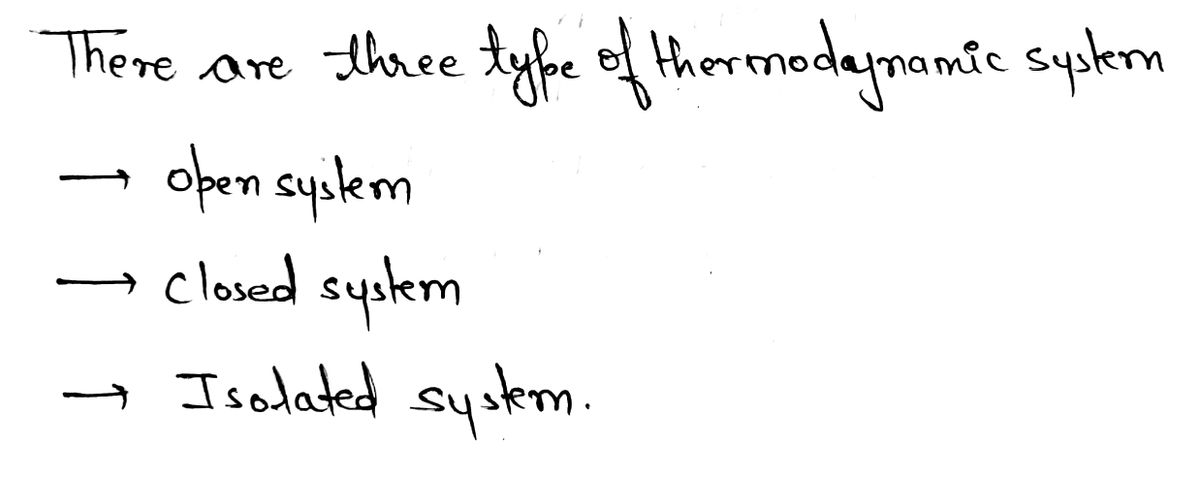 There are three type of thermodaynamic system
→ open system
→ closed system
→ Isolated system.